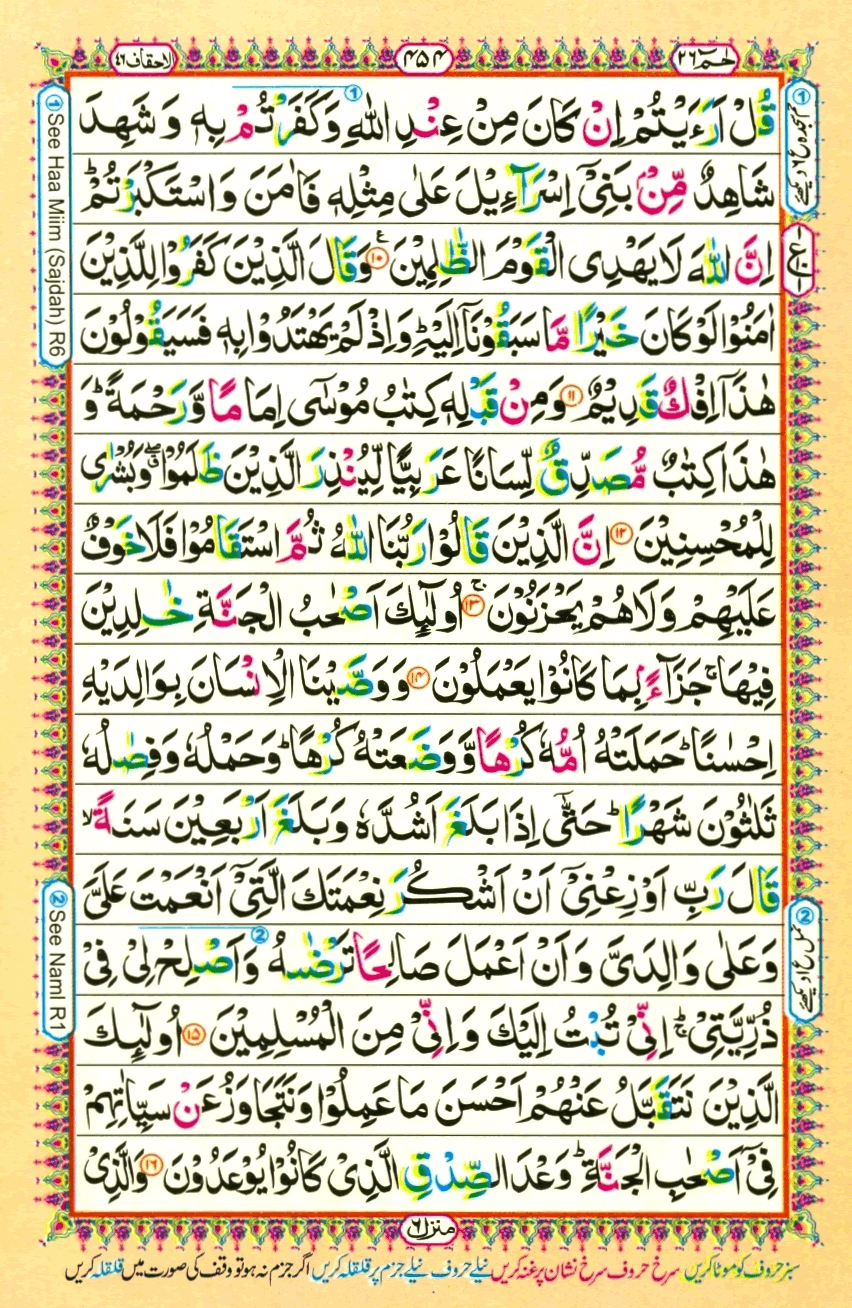 الاحقاف ۴۶
۴۵۴
حٰمٓ ۲۶
قُلْ اَرَءَيْتُمْ اِنْ كَانَ مِنْ عِنْدِ اللّٰهِ وَكَفَرْتُمْ ① بِهٖ وَشَهِدَ
شَاهِدٌ مِّنْۢ بَنِیْۤ اِسْرَآءِیْلَ عَلٰی مِثْلِهٖ فَاٰمَنَ وَاسْتَكْبَرْتُمْ ؕ
اِنَّ اللّٰهَ لَا یَهْدِی الْقَوْمَ الظّٰلِمِیْنَ ۱۰ ع وَقَالَ الَّذِیْنَ كَفَرُوْا لِلَّذِیْنَ
اٰمَنُوْا لَوْ كَانَ خَیْرًا مَّا سَبَقُوْنَاۤ اِلَیْهِ ؕ وَاِذْ لَمْ یَهْتَدُوْا بِهٖ فَسَیَقُوْلُوْنَ
هٰذَاۤ اِفْكٌ قَدِیْمٌ ۱۱ وَمِنْ قَبْلِهٖ كِتٰبُ مُوْسٰۤی اِمَامًا وَّرَحْمَةً ؕ وَ
هٰذَا كِتٰبٌ مُّصَدِّقٌ لِّسَانًا عَرَبِیًّا لِّیُنْذِرَ الَّذِیْنَ ظَلَمُوْا ۖۗ وَبُشْرٰی
لِلْمُحْسِنِیْنَ ۱۲ اِنَّ الَّذِیْنَ قَالُوْا رَبُّنَا اللّٰهُ ثُمَّ اسْتَقَامُوْا فَلَا خَوْفٌ
عَلَیْهِمْ وَلَا هُمْ یَحْزَنُوْنَ ۱۳ ۚ اُولٰٓئِكَ اَصْحٰبُ الْجَنَّةِ خٰلِدِیْنَ
فِیْهَا ۚ جَزَآءًۢ بِمَا كَانُوْا یَعْمَلُوْنَ ۱۴ وَوَصَّیْنَا الْاِنْسَانَ بِوَالِدَیْهِ
اِحْسٰنًا ؕ حَمَلَتْهُ اُمُّهٗ كُرْهًا وَّوَضَعَتْهُ كُرْهًا ؕ وَحَمْلُهٗ وَفِصٰلُهٗ
ثَلٰثُوْنَ شَهْرًا ؕ حَتّٰۤی اِذَا بَلَغَ اَشُدَّهٗ وَبَلَغَ اَرْبَعِیْنَ سَنَةً ۙ
قَالَ رَبِّ اَوْزِعْنِیْۤ اَنْ اَشْكُرَ نِعْمَتَكَ الَّتِیْۤ اَنْعَمْتَ عَلَیَّ
وَعَلٰی وَالِدَیَّ وَاَنْ اَعْمَلَ صَالِحًا تَرْضٰىهُ ② وَاَصْلِحْ لِیْ فِیْ
ذُرِّیَّتِیْ ؕۚ اِنِّیْ تُبْتُ اِلَیْكَ وَاِنِّیْ مِنَ الْمُسْلِمِیْنَ ۱۵ اُولٰٓئِكَ
الَّذِیْنَ نَتَقَبَّلُ عَنْهُمْ اَحْسَنَ مَا عَمِلُوْا وَنَتَجَاوَزُ عَنْ سَیِّاٰتِهِمْ
فِیْۤ اَصْحٰبِ الْجَنَّةِ ؕ وَعْدَ الصِّدْقِ الَّذِیْ كَانُوْا یُوْعَدُوْنَ ۱۶ وَالَّذِیْ
① See Haa Miim (Sajdah) R6
② See Naml R1
منزل ۶
سبز حروف کو موٹا کریں سرخ حروف سرخ نشان پر غنہ کریں نیلے حروف نیلے جزم پر قلقلہ کریں اگر جزم نہ ہو تو وقف کی صورت میں قلقلہ کریں